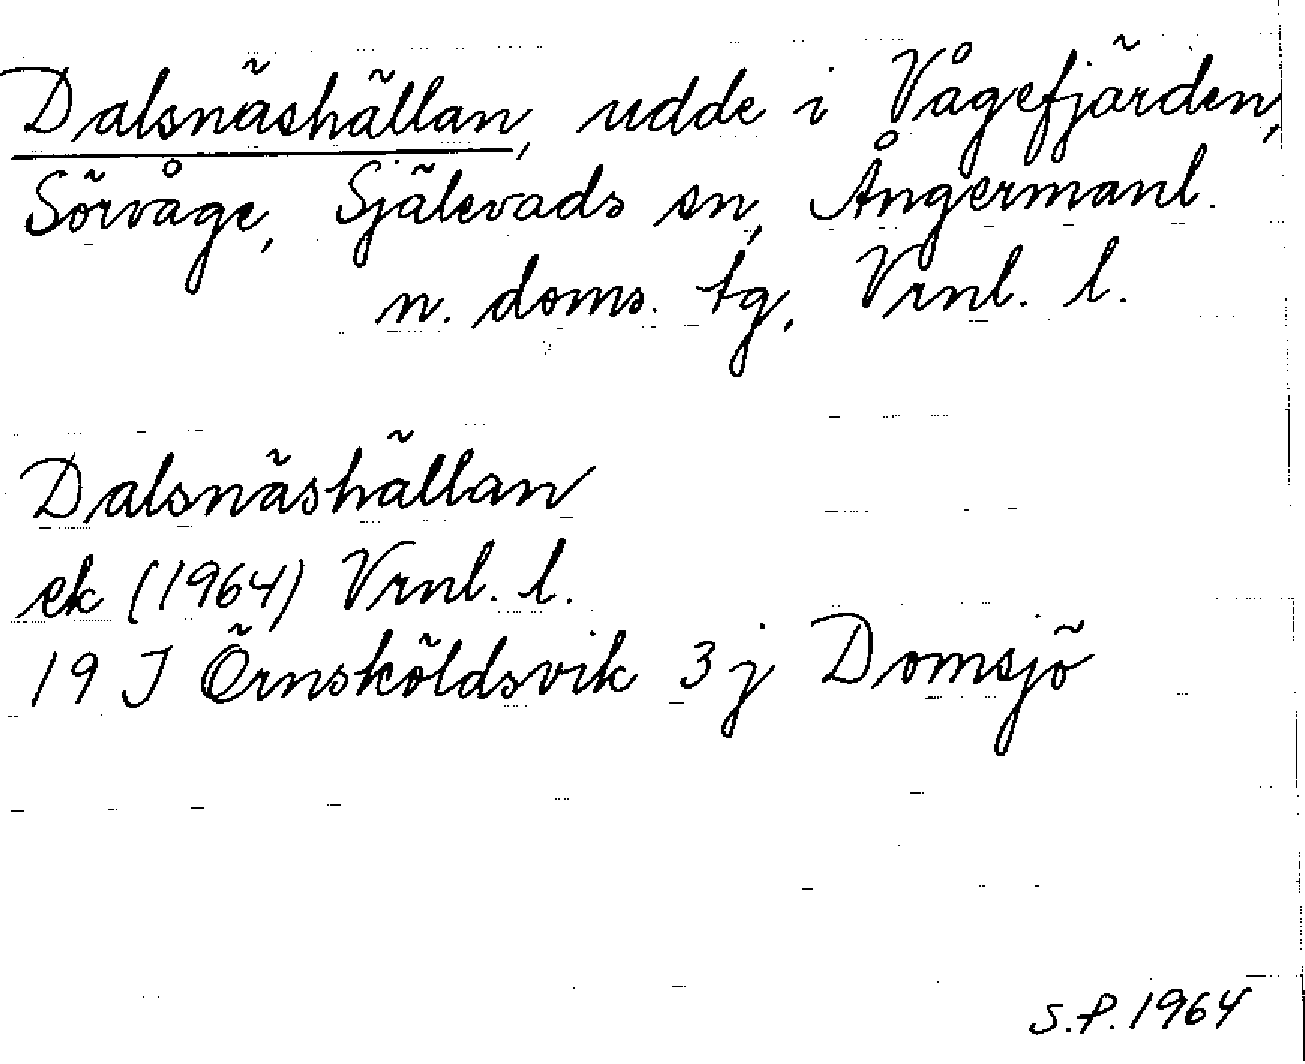 Dalsnäshällan, udde i Vågefjärden,
Sörvåge, Själevads sn, Ångermanl.
n. doms. tg, Vrnl. l.
Dalsnäshällan
ek (1964) Vrnl. l.
19 J Örnsköldsvik 3 j Domsjö
S.P. 1964